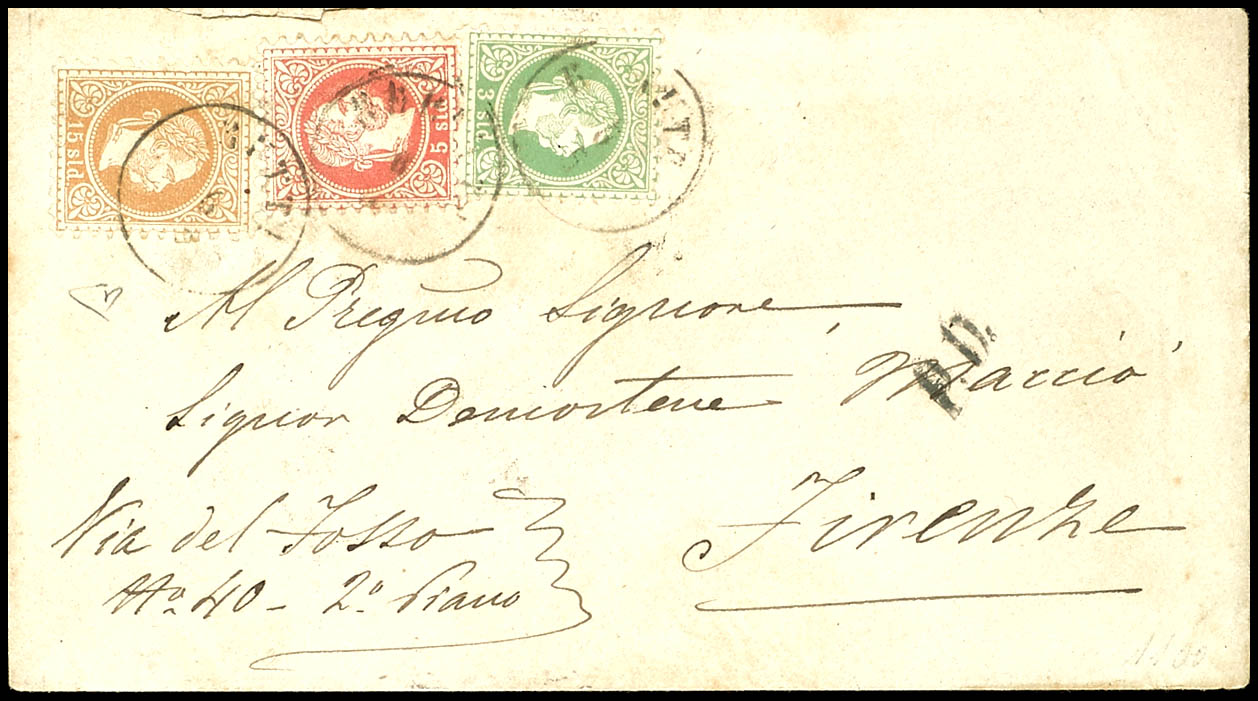 15 sld
5 sld
3 sld
Al Pregmo Signore
Signor Demostene Macciò
P.D.
Firenze
Via del Fosso
No. 40 - 2º Piano